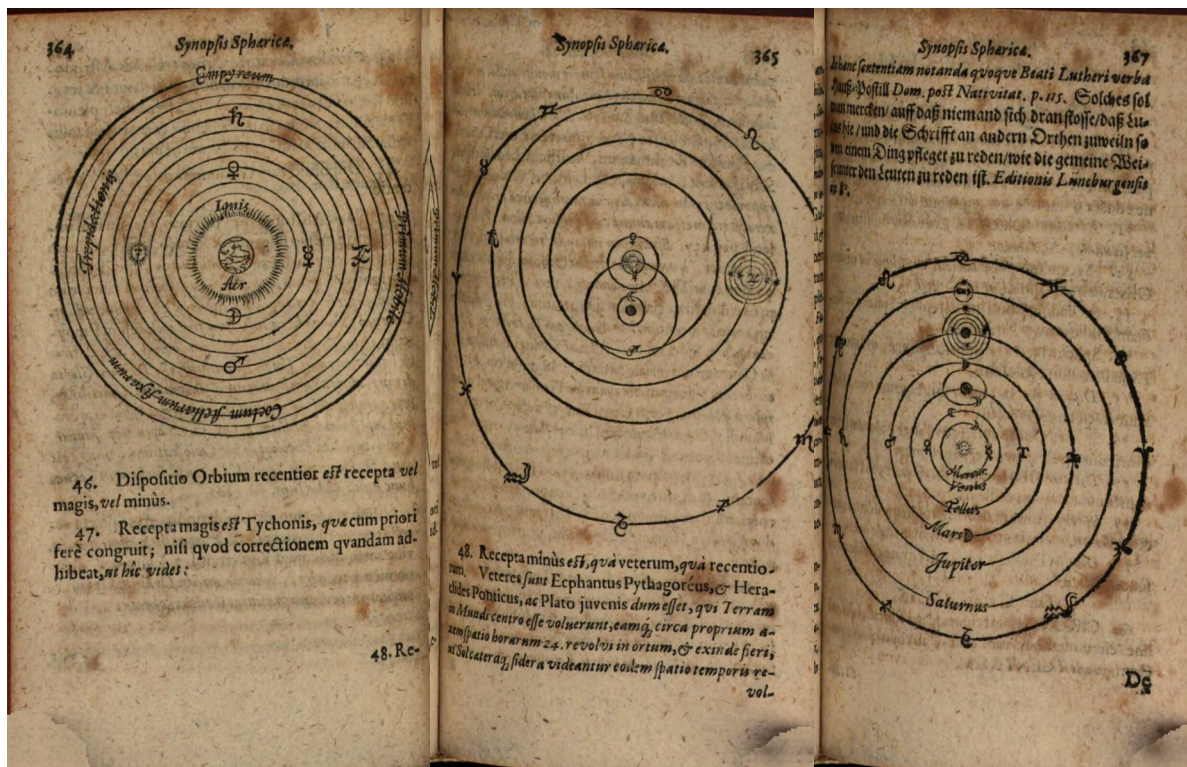 364
Synopsis Sphæricæ.
Empyreum
Trepidationis
Primum Mobile
Ignis
Aër
Coelum stellarum fixarum
46. Dispositio Orbium recentior est recepta vel
magis, vel minùs.
47. Recepta magis est Tychonis, qvæ cum priori
ferè congruit; nisi qvod correctionem qvandam ad-
hibeat, ut hîc vides:
48. Re-
Synopsis Sphæricæ.
365
48. Recepta minùs est, qvà veterum, qvà recentio-
rum. Veteres sunt Ecphantus Pythagoréus, & Hera-
clides Ponticus, ac Plato juvenis dum esset, qvi Terram
in Mundi centro esse voluerunt, eamq; circa proprium a-
xem spatio horarum 24. revolvi in ortum, & exinde fieri,
ut Sol cæteraq; sidera videantur eodem spatio temporis re-
vol-
Synopsis Sphæricæ.
367
hanc sententiam notanda qvoqve Beati Lutheri verba
Hauß-Postill Dom. post Nativitat. p. 115. Solches sol
man mercken/ auff daß niemand sich dran stosse/ daß Lu-
cas hie/ und die Schrifft an andern Orthen zuweiln so
von einem Ding pfleget zu reden/ wie die gemeine Wei-
se unter den Leuten zu reden ist. Editionis Lüneburgensis
Mercur.
Venus
Tellus
Mars
Jupiter
Saturnus
De